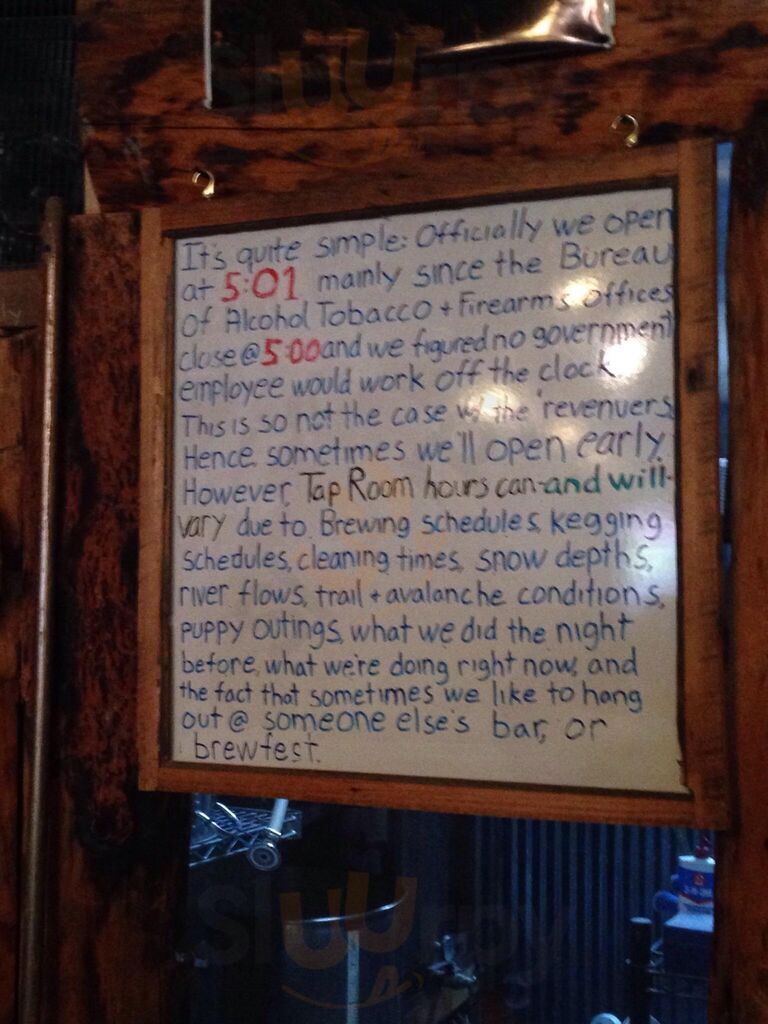 It's quite simple: Officially we open
at 5:01 mainly since the Bureau
Of Alcohol Tobacco + Firearms offices
close @ 5:00 and we figured no government
employee would work off the clock.
This is so not the case w/ the 'revenuers
Hence sometimes we'll open early.
However, Tap Room hours can-and will-
vary due to Brewing schedules, kegging
schedules, cleaning times, snow depths,
river flows, trail + avalanche conditions,
puppy outings, what we did the night
before, what we're doing right now, and
the fact that sometimes we like to hang
out @ someone else's bar, or
brewfest.
sluurpy
sluurpy